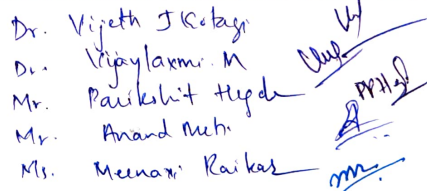 Dr. Vijeth J Kotagi
Dr. Vijaylaxmi. M
Mr. Parikshit Hegde
Mr. Anand
Ms. Meenaxi Raikar